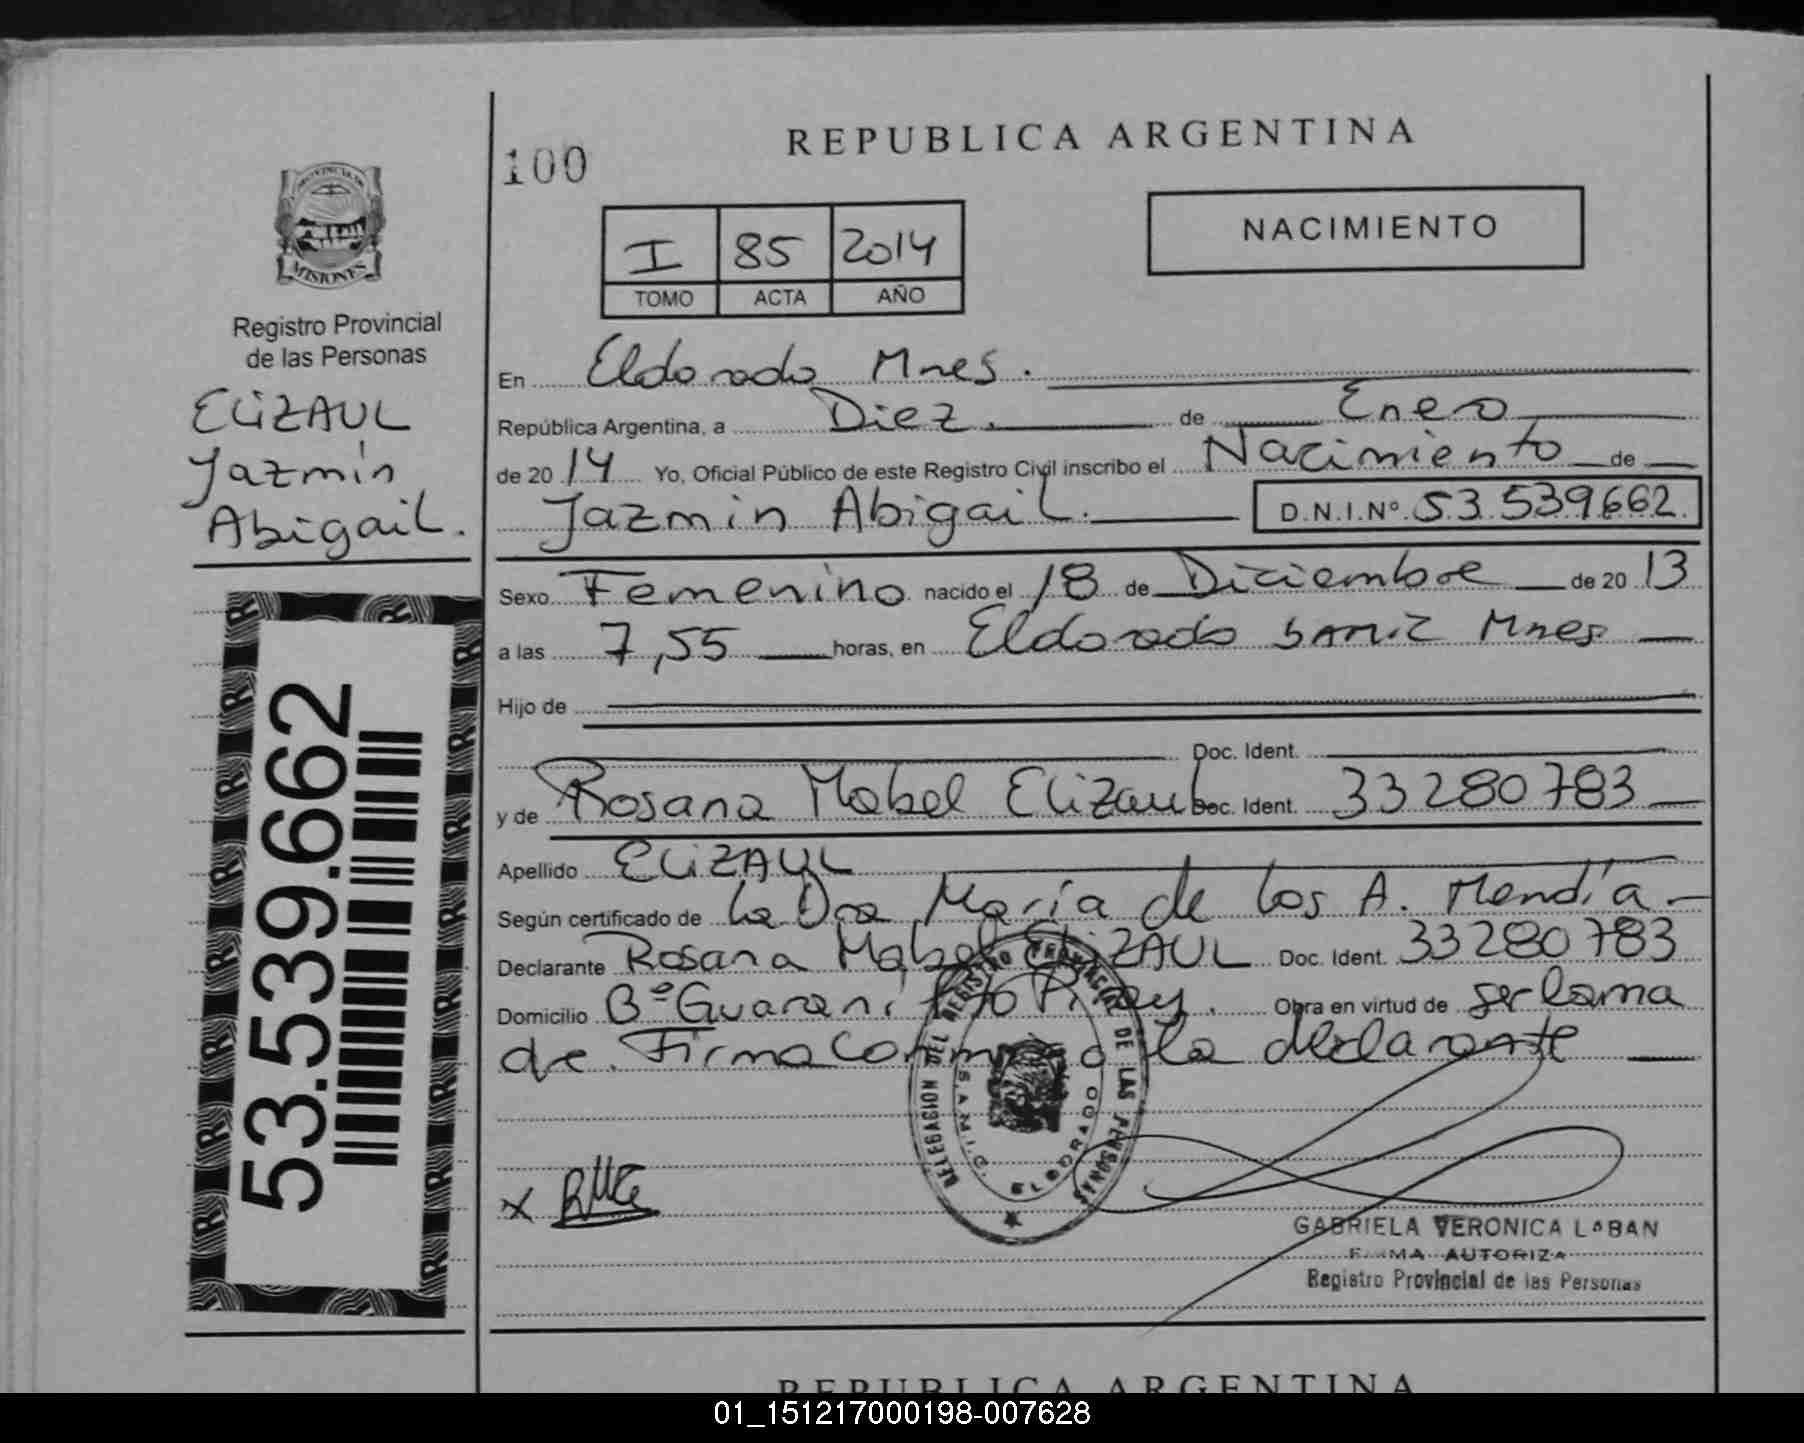 REPUBLICA ARGENTINA
100
NACIMIENTO
I 85 2014
TOMO ACTA AÑO
PROVINCIA DE
MISIONES
Registro Provincial
de las Personas
ELIZAUL
Jazmín
Abigail.
53.539.662
En Eldorado Mnes.
República Argentina, a Diez. de Enero
de 2014 Yo, Oficial Público de este Registro Civil inscribo el Nacimiento de
Jazmin Abigail. D.N.I.Nº. 53.539662.
Sexo Femenino nacido el 18 de Diciembre de 2013
a las 7,55 horas, en Eldorado SAMIC Mnes
Hijo de
Doc. Ident.
y de Rosana Mabel Elizaul Doc. Ident. 33280783
Apellido ELIZAUL
Según certificado de la Dra María de los A. Mendía
Declarante Rosana Mabel ELIZAUL Doc. Ident. 33280783
Domicilio Bº Guaraní Pto Piray. Obra en virtud de ser la ma
dre. Firma Conmigo la declarante
DELEGACION DEL REGISTRO PROVINCIAL DE LAS PERSONAS
S.A.M.I.C. ELDORADO
x RME
GABRIELA VERONICA LABAN
FIRMA AUTORIZA
Registro Provincial de las Personas
REPUBLICA ARGENTINA
01_151217000198-007628